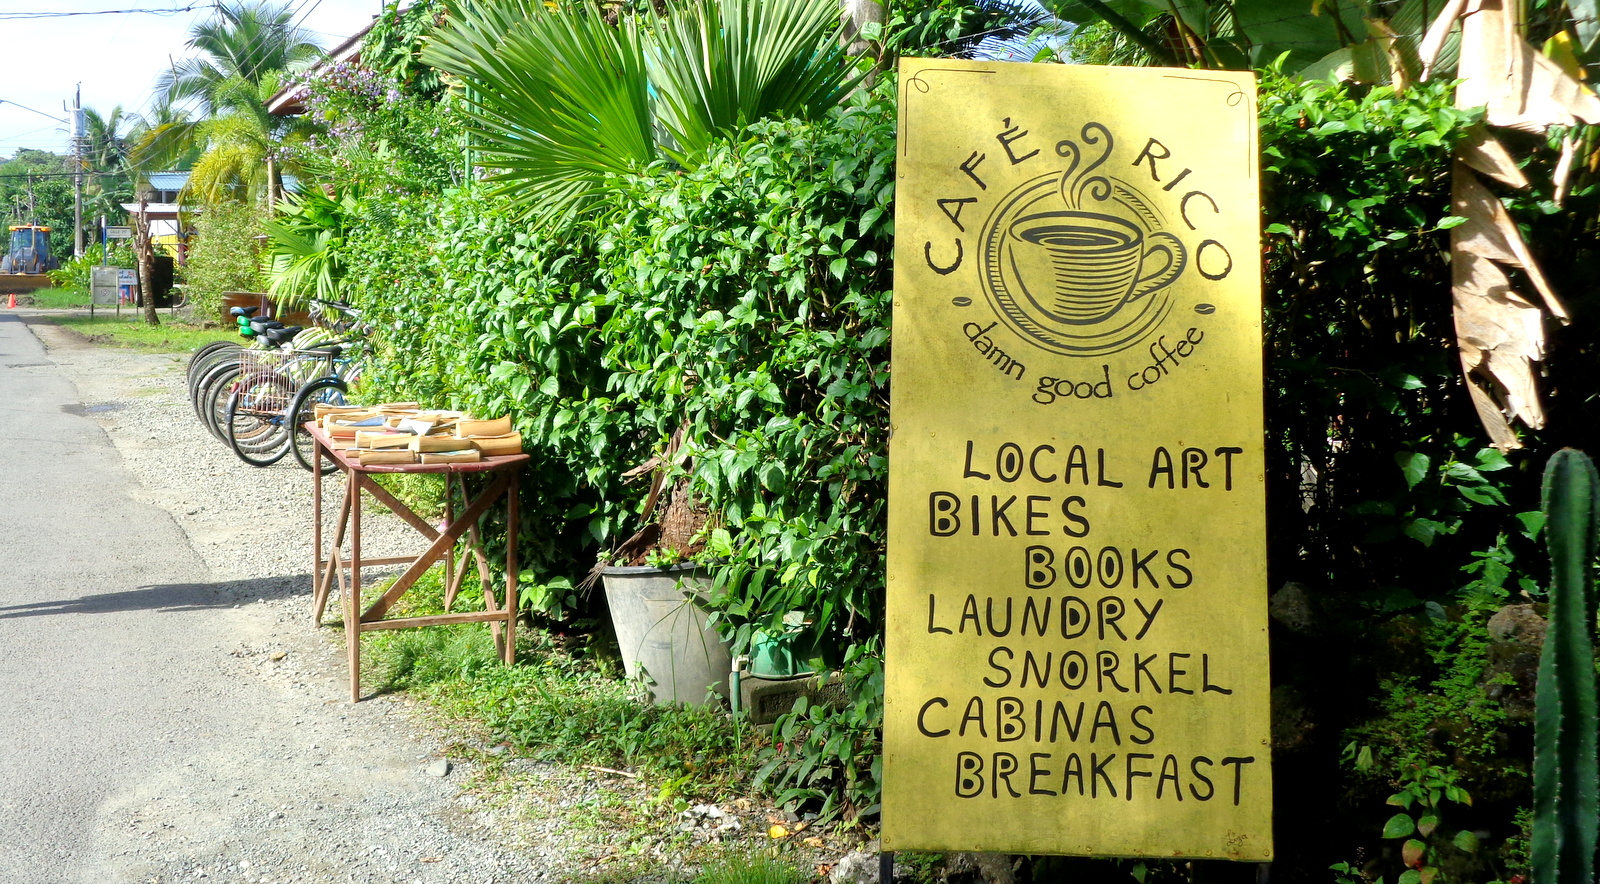 CAFÉ RICO
damn good coffee
LOCAL ART
BIKES
BOOKS
LAUNDRY
SNORKEL
CABINAS
BREAKFAST